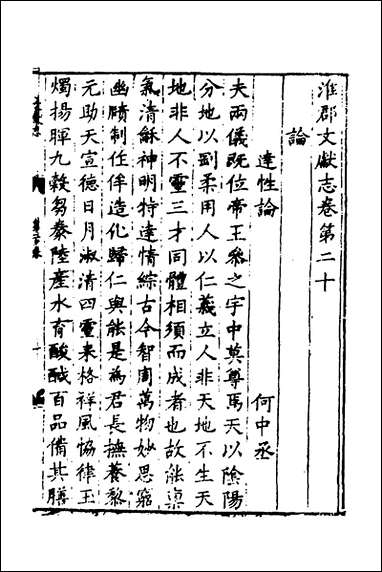 淮郡文獻志卷第二十
論
達性論
何中丞
夫兩儀既位帝王叅之宇中莫尊焉天以陰陽
分地以剛柔用人以仁義立人非天地不生天
地非人不靈三才同體相須而成者也故能稟
氣清龢神明特達情綜古今智周萬物妙思窮
幽賾制作侔造化歸仁與能是為君長撫養黎
元助天宣德日月淑清四靈來格祥風恊律玉
燭揚暉九穀芻豢陸產水育酸醎百品備其膳